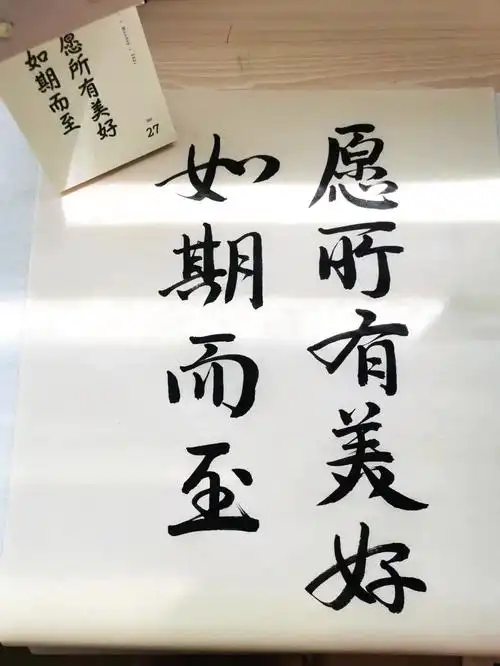 愿所有美好
如期而至
愿所有美好
如期而至
27